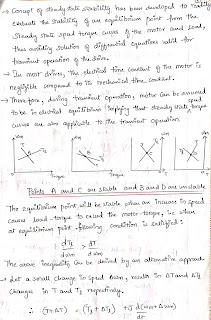 → Concept of steady state stability has been developed to readily
evaluate the stability of an equilibrium point from the
steady state speed torque curves of the motor and load,
thus avoiding solution of differential equations valid for
transient operation of the drive.
→ In most drives, the electrical time constant of the motor is
negligible compared to its mechanical time constant.
→ Therefore, during transient operation, motor can be assumed
to be in electrical equilibrium implying that steady state speed torque
curves are also applicable to the transient operation.
Torque Torque Torque Torque
Points A and C are stable and B and D are unstable
The equilibrium point will be stable when an increase in speed
causes load-torque to exceed the motor-torque, i.e. when
at equilibrium point following condition is satisfied:
dTl/dωm > dT/dωm
The above inequality can be derived by an alternative approach.
→ Let a small change in speed Δωm, results in ΔT and ΔTl
changes in T and Tl respectively,
∴ (T+ΔT) = (Tl + ΔTl) + J d(ωm + Δωm)/dt